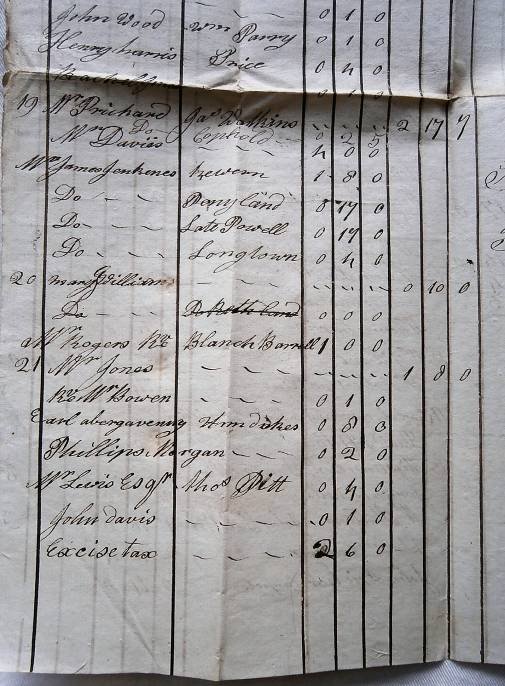 John Wood - - - 0 1 0
Henry harris Wm Parry 0 1 0
Price 0 4 0
19 Mr Prichard Jas Watkins 2 17 7
Mr Davis 4 0 0
Mr James Jenkenes Kewern 1 8 0
Do - - - Penyland 0 17 0
Do - - - Late Powell 0 17 0
Do - - - Longtown 0 4 0
20 mary Williams - - - - 0 10 0
Do - - 0 0 0
Mr Rogers Blanch Barrell 1 0 0
21 Mr Jones - - - - 1 8 0
Mr Bowen - - - 0 1 0
Earl abergavenny 0 8 0
Phillips Morgan - - - 0 2 0
Mr Lewis Esqr thos Pitt 0 4 0
John davis - - - 0 1 0
Excise tax - - - 2 6 0